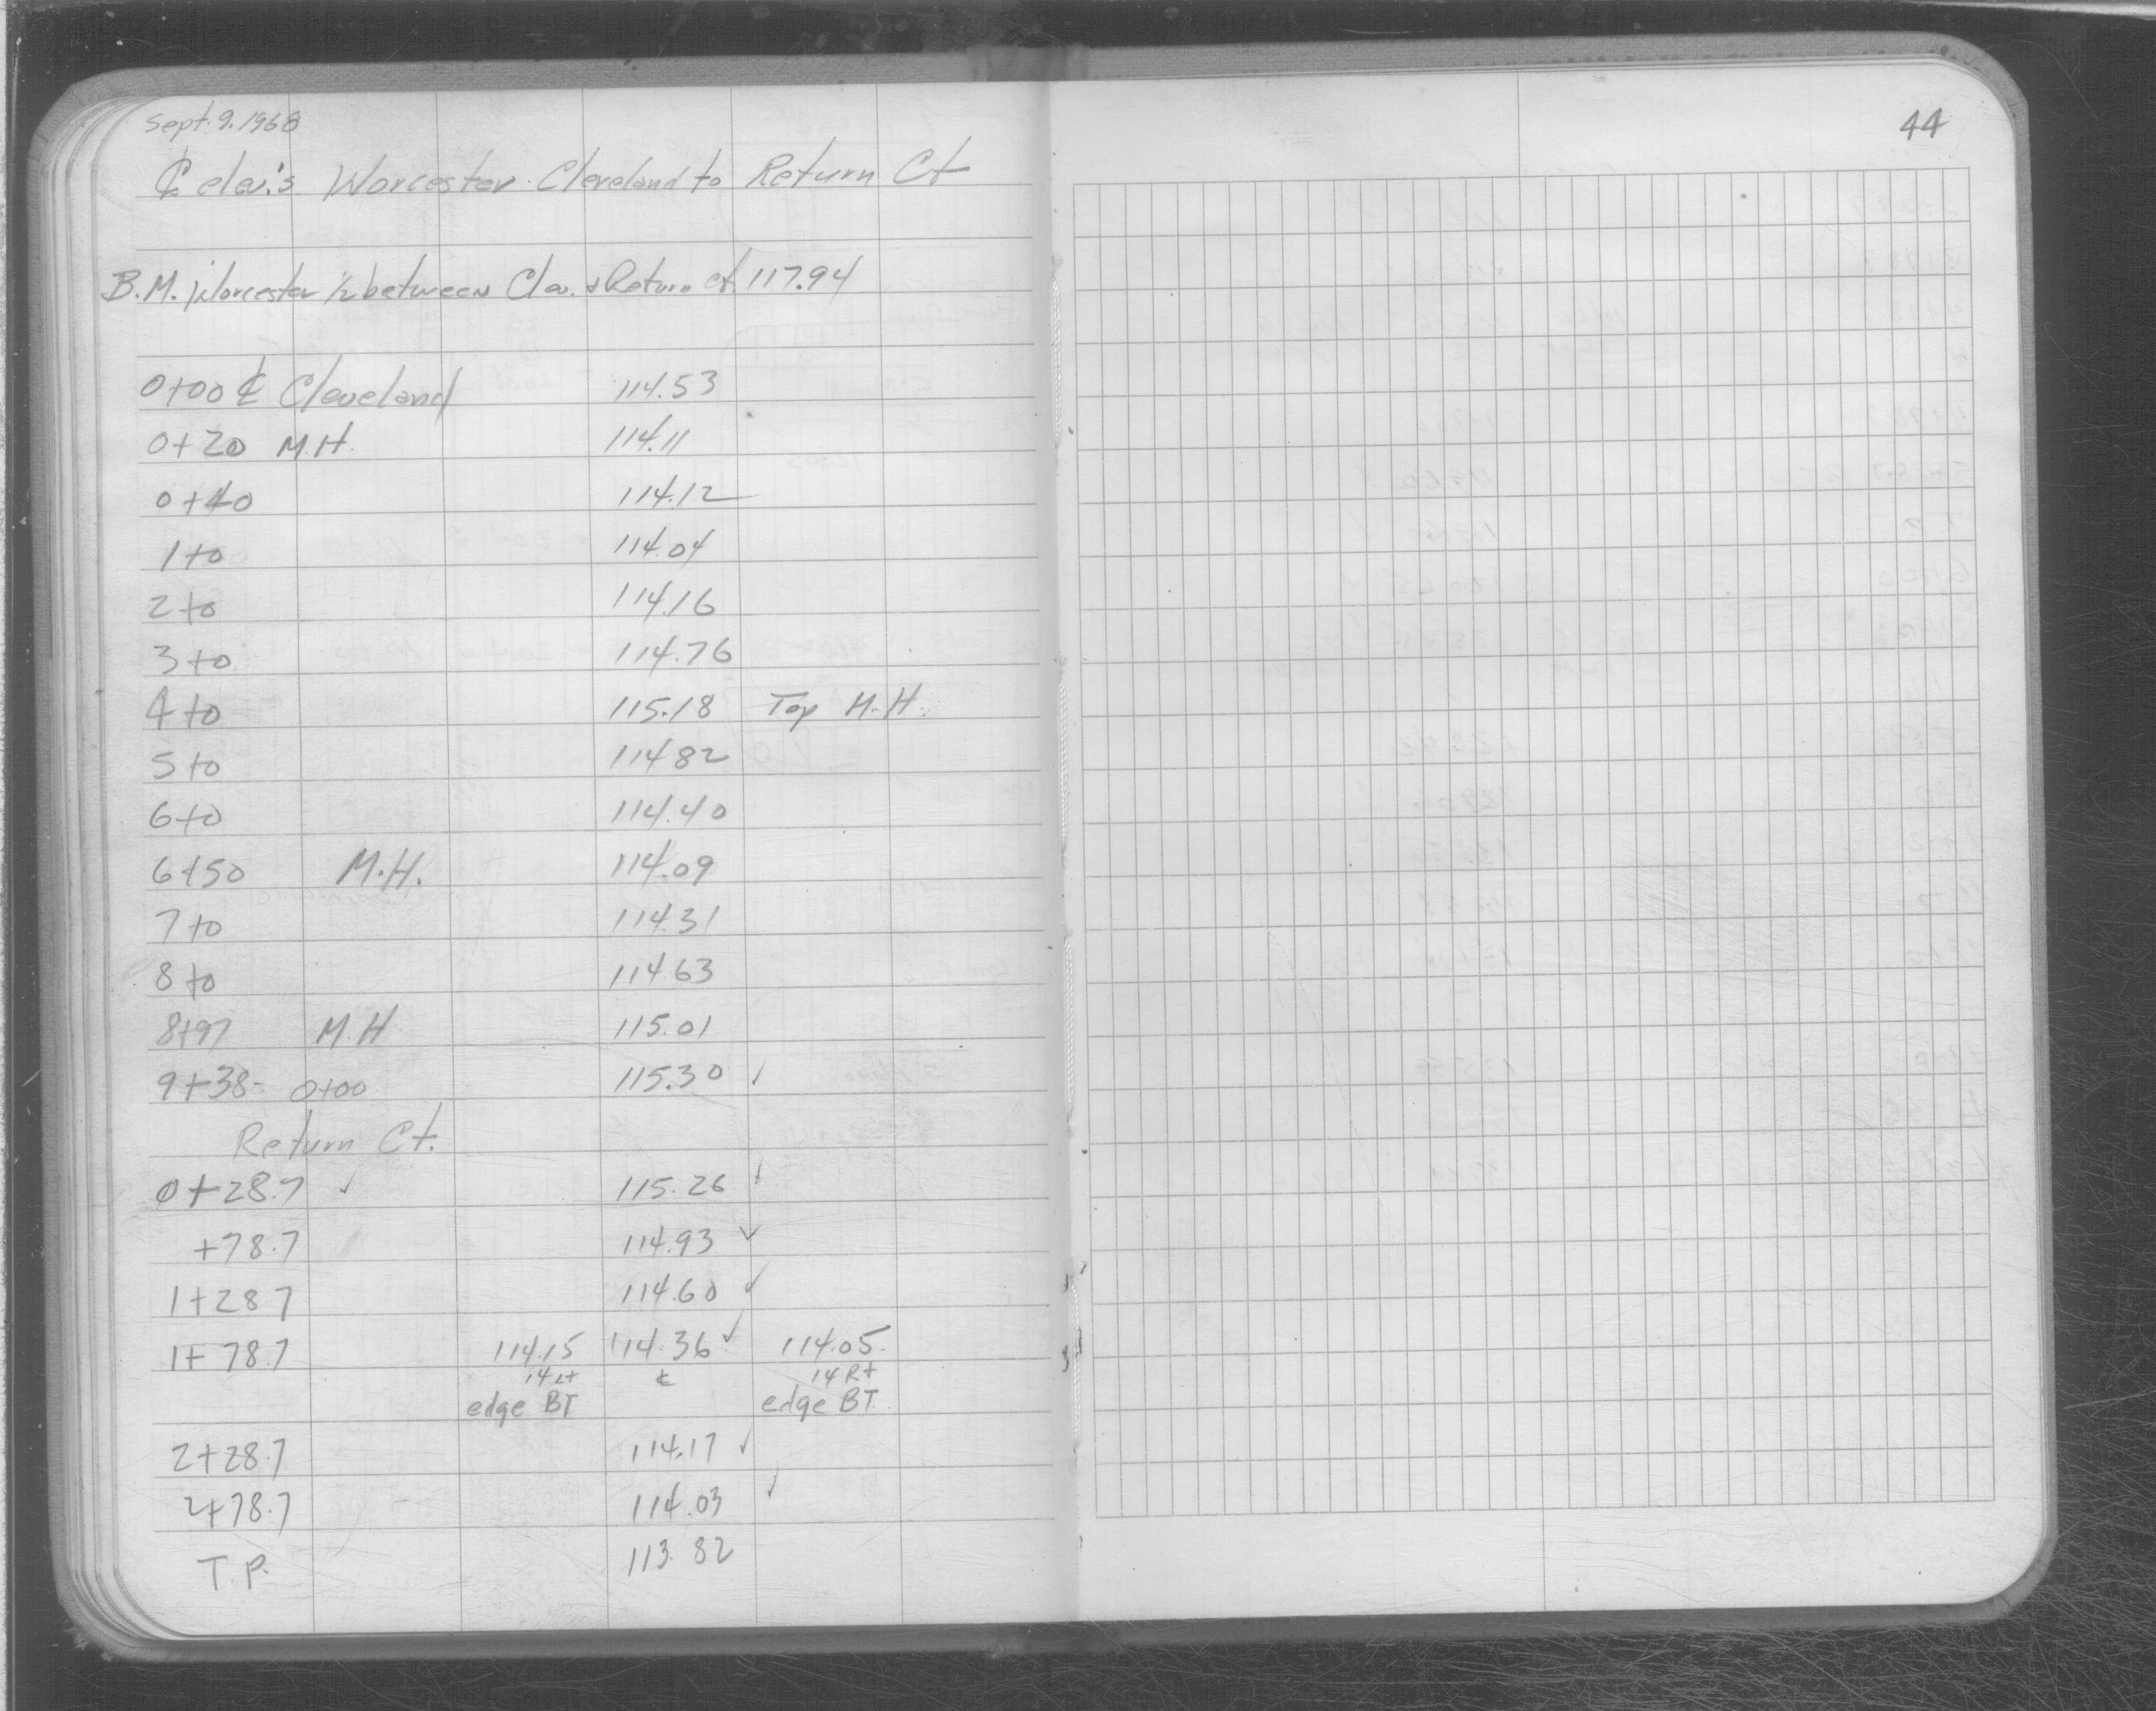 Sept. 9. 1968
44
℄ elev.'s Worcester - Cleveland to Return Ct
B.M. Worcester 1/2 between Clev. & Return Ct. 117.94
0+00 ℄ Cleveland 114.53
0+20 M.H. 114.11
0+40 114.12
1+0 114.04
2+0 114.16
3+0 114.76
4+0 115.18 Top M.H.
5+0 114.82
6+0 114.40
6+50 M.H. 114.09
7+0 114.31
8+0 114.63
8+97 M.H 115.01
9+38- 0+00 115.30 ✓
Return Ct.
0+28.7 ✓ 115.26 ✓
+78.7 114.93 ✓
1+28.7 114.60 ✓
1+78.7 114.15 114.36 ✓ 114.05
14 Lt ℄ 14 Rt
edge BT edge BT.
2+28.7 114.17 ✓
2+78.7 114.03 ✓
T.P. 113.82